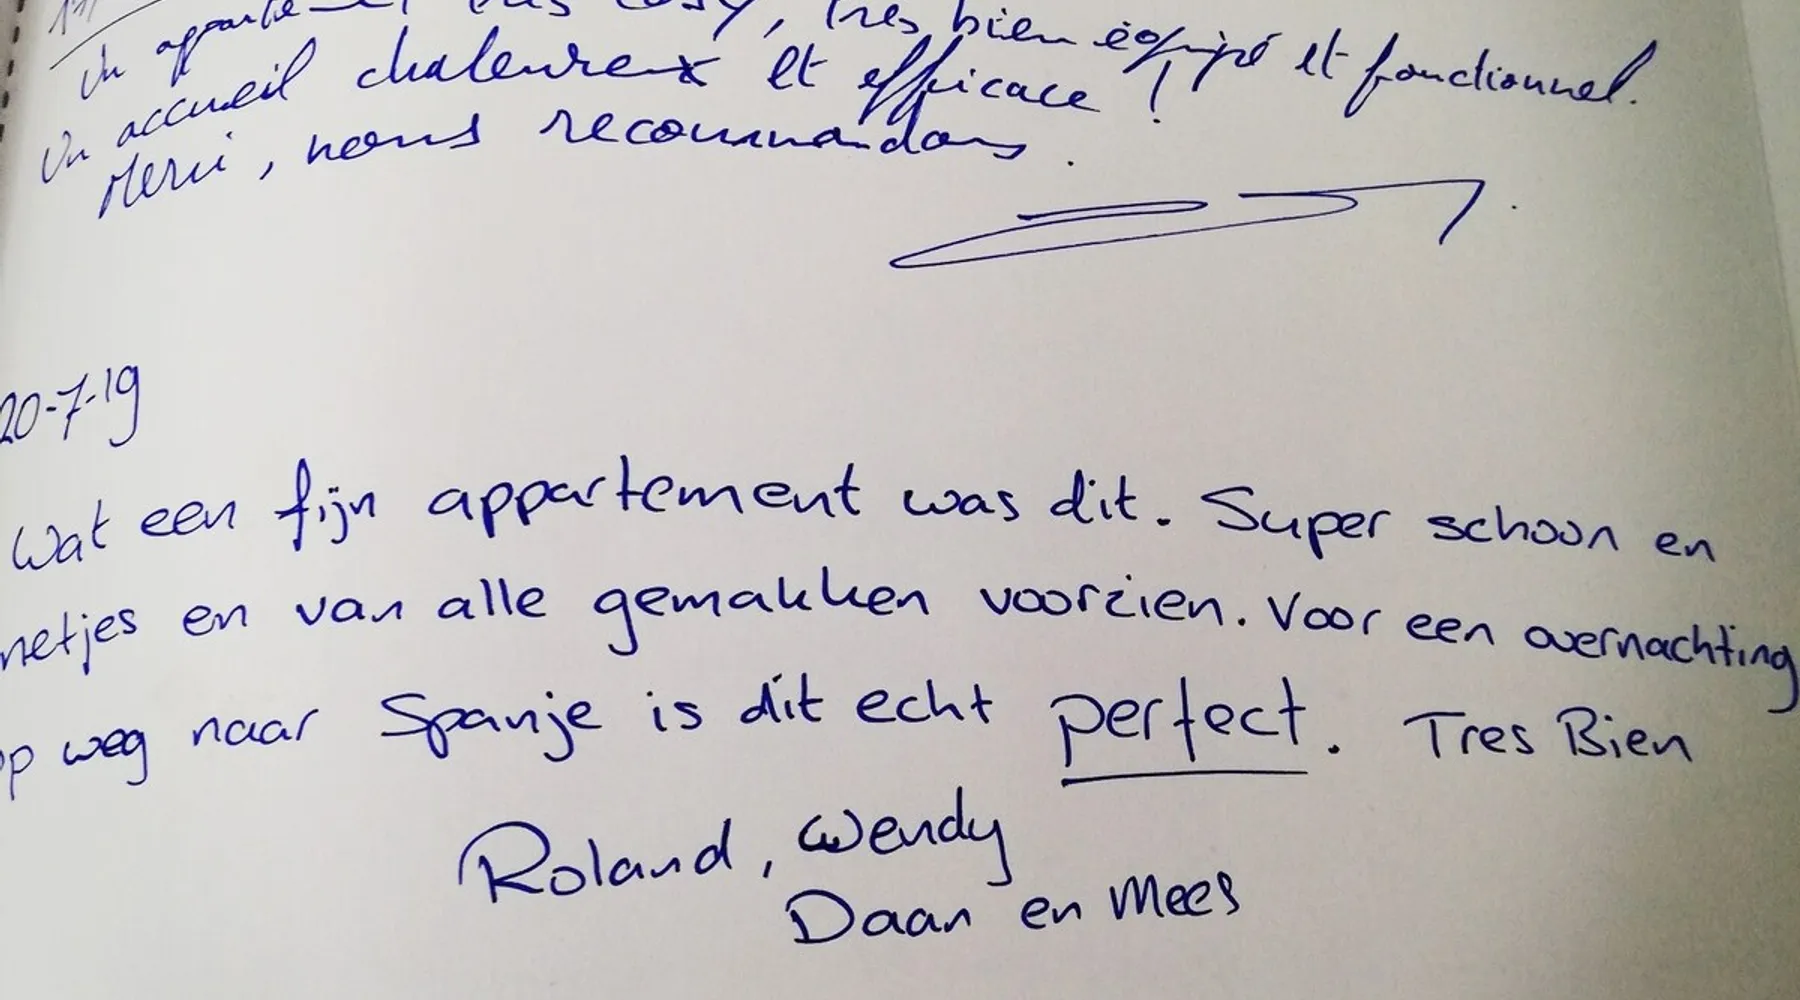 Un appartement très cosy, très bien équipé et fonctionnel.
Un accueil chaleureux et efficace !
Merci, nous recommandons.
20-7-19
Wat een fijn appartement was dit. Super schoon en
netjes en van alle gemakken voorzien. Voor een overnachting
op weg naar Spanje is dit echt perfect. Tres Bien
Roland, Wendy
Daan en Mees